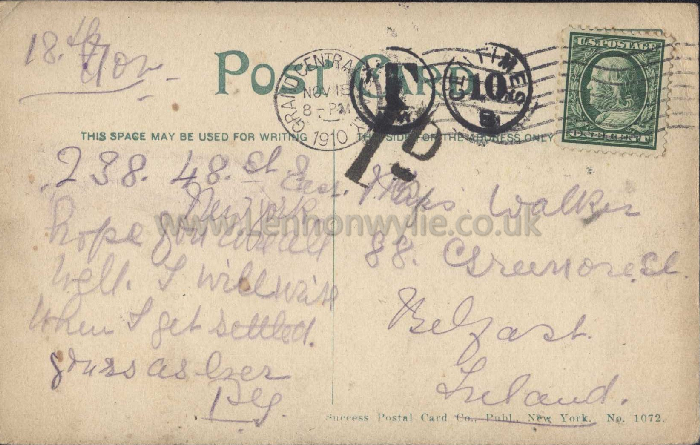 18th Nov
POST CARD
GRAND CENTRAL
NOV 18
8-PM
1910
T
CENTIMES
10
1D
U.S. POSTAGE
THIS SPACE MAY BE USED FOR WRITING
THE SIDE FOR THE ADDRESS ONLY
238. 48. St East
New York
hope you are all
well. I will write
when I get settled.
yours as Ever
Peg.
www.Lennonwylie.co.uk
Walker
88. Greenmore St
Belfast.
Ireland.
Success Postal Card Co., Publ., New York. No. 1072.